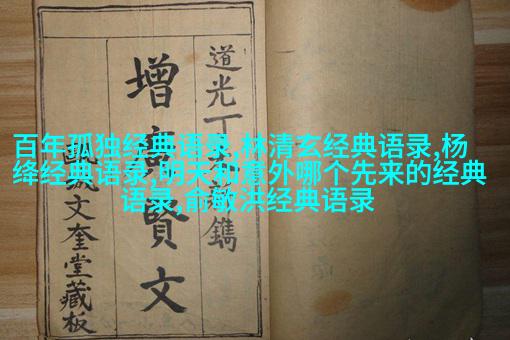 百年孤独经典语录,林清玄经典语录,杨
绛经典语录,明天和意外哪个先来的经典
语录,俞敏洪经典语录
道光丁鐫
增廣賢文
文奎堂藏板